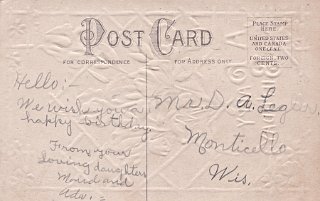 POST CARD
FOR CORRESPONDENCE
FOR ADDRESS ONLY
PLACE STAMP
HERE
UNITED STATES
AND CANADA
ONE CENT
FOREIGN, TWO
CENTS.
Hello:-
We wish you a
happy birthday
From your
loving daughters
Maud and
Ada.
Mr. D. A.
Monticello
Wis.